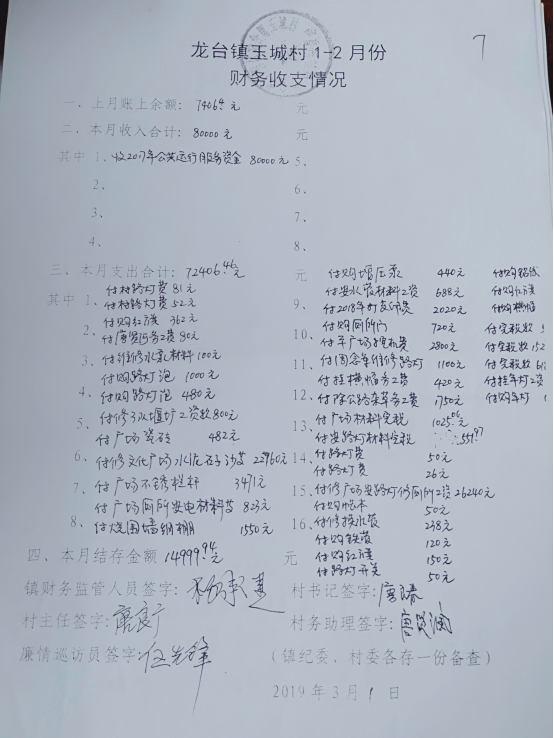 7
龙台镇玉城村1-2月份
财务收支情况
一、上月账上余额: 7406.4元 元
二、本月收入合计: 80000元 元
其中 1、收2017年公共运行服务资金 80000元 5、
2、 6、
3、 7、
4、 8、
三、本月支出合计: 72406.46元 元
其中 1、付村路灯费 81元
付村路灯费 52元
2、付购红旗 362元
付唐贤芳务工费 80元
3、付维修水泵材料 100元
付购路灯泡 1000元
4、付购路灯泡 480元
5、付修3水堰矿工资款 800元
付广场瓷砖 482元
6、付修文化广场水泥石子沙等 22960元
7、付广场不锈栏杆 3471元
付广场厕所安电材料等 823元
8、付烧围墙钢棚 1550元
付购增压泵 440元
付安水管材料工资 688元
9、付2018年打表印费 2020元
付购厕所门 720元
10、付平广场挖机费 2800元
11、付周念军维修路灯 1100元
付挂横幅务工费 420元
12、付除公路杂草务工费 1750元
13、付广场材料完税 1025.06
付安路灯材料完税 559.97
14、付路灯费 50元
付路灯费 26元
15、付修广场安路灯修厕所工资 26240元
50元
16、付修接水管 238元
付购铁货 120元
付购红旗 150元
付路灯开关 50元
付购铝线
付购红旗
付购横幅
付完税款
付完税款 152
付完税款 61
付挂年灯工
付购年灯
四、本月结存金额 14999.94元 元
镇财务监管人员签字: 村书记签字:
村主任签字: 村务助理签字:
廉情巡访员签字:
(镇纪委、村委各存一份备查)
2019年3月1日